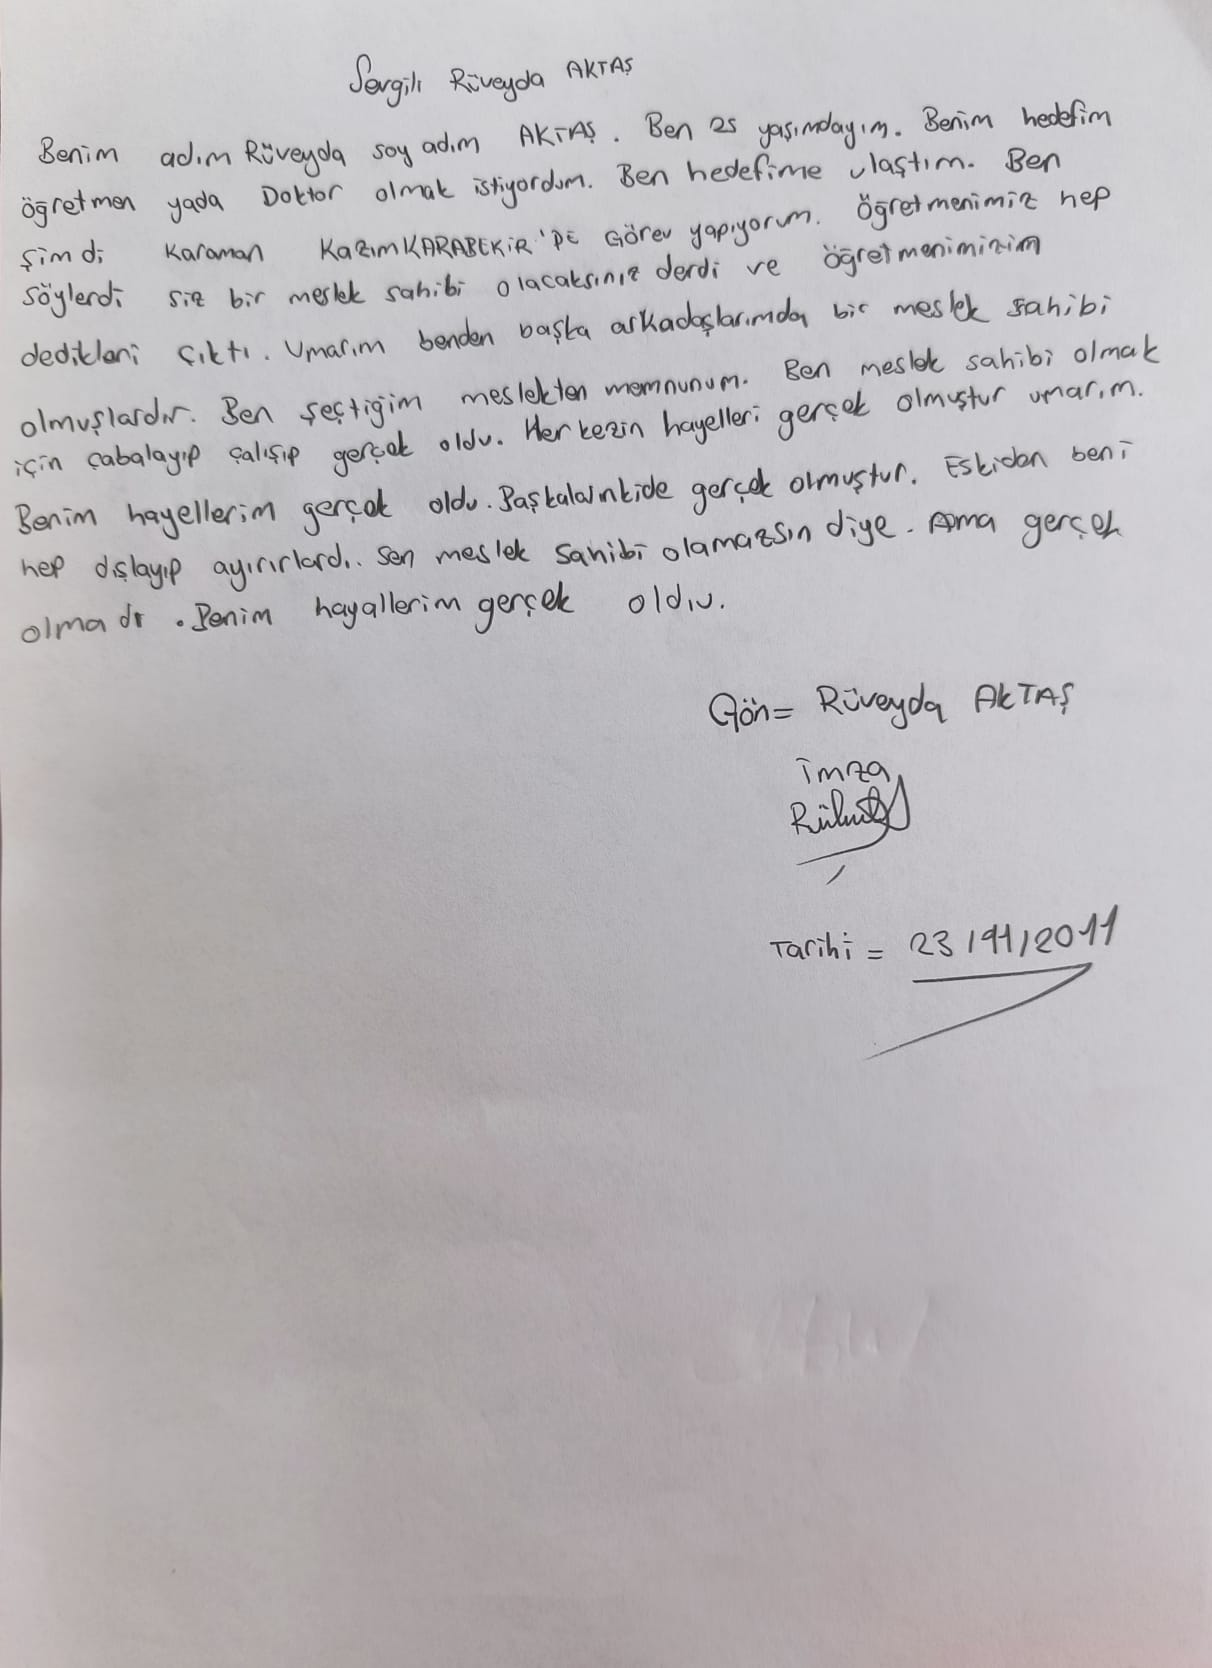 Sevgili Rüveyda AKTAŞ
Benim adım Rüveyda soy adım AKTAŞ. Ben 25 yaşındayım. Benim hedefim
öğretmen yada Doktor olmak istiyordum. Ben hedefime ulaştım. Ben
şimdi Karaman KazımKARABEKİR'DE Görev yapıyorum. Öğretmenimiz hep
söylerdi siz bir meslek sahibi olacaksınız derdi ve öğretmenimizim
dedikleni çıktı. Umarım benden başka arkadaşlarımda bir meslek sahibi
olmuşlardır. Ben seçtiğim meslekten memnunum. Ben meslek sahibi olmak
için çabalayıp çalışıp gerçek oldu. Herkezin hayelleri gerçek olmuştur umarım.
Benim hayellerim gerçek oldu. Başkalarınkide gerçek olmuştur. Eskiden beni
hep dışlayıp ayırırlardı. Sen meslek sahibi olamazsın diye. Ama gerçek
olmadı. Benim hayallerim gerçek oldu.
Gön= Rüveyda AKTAŞ
İmza
Tarihi = 23/11/2011